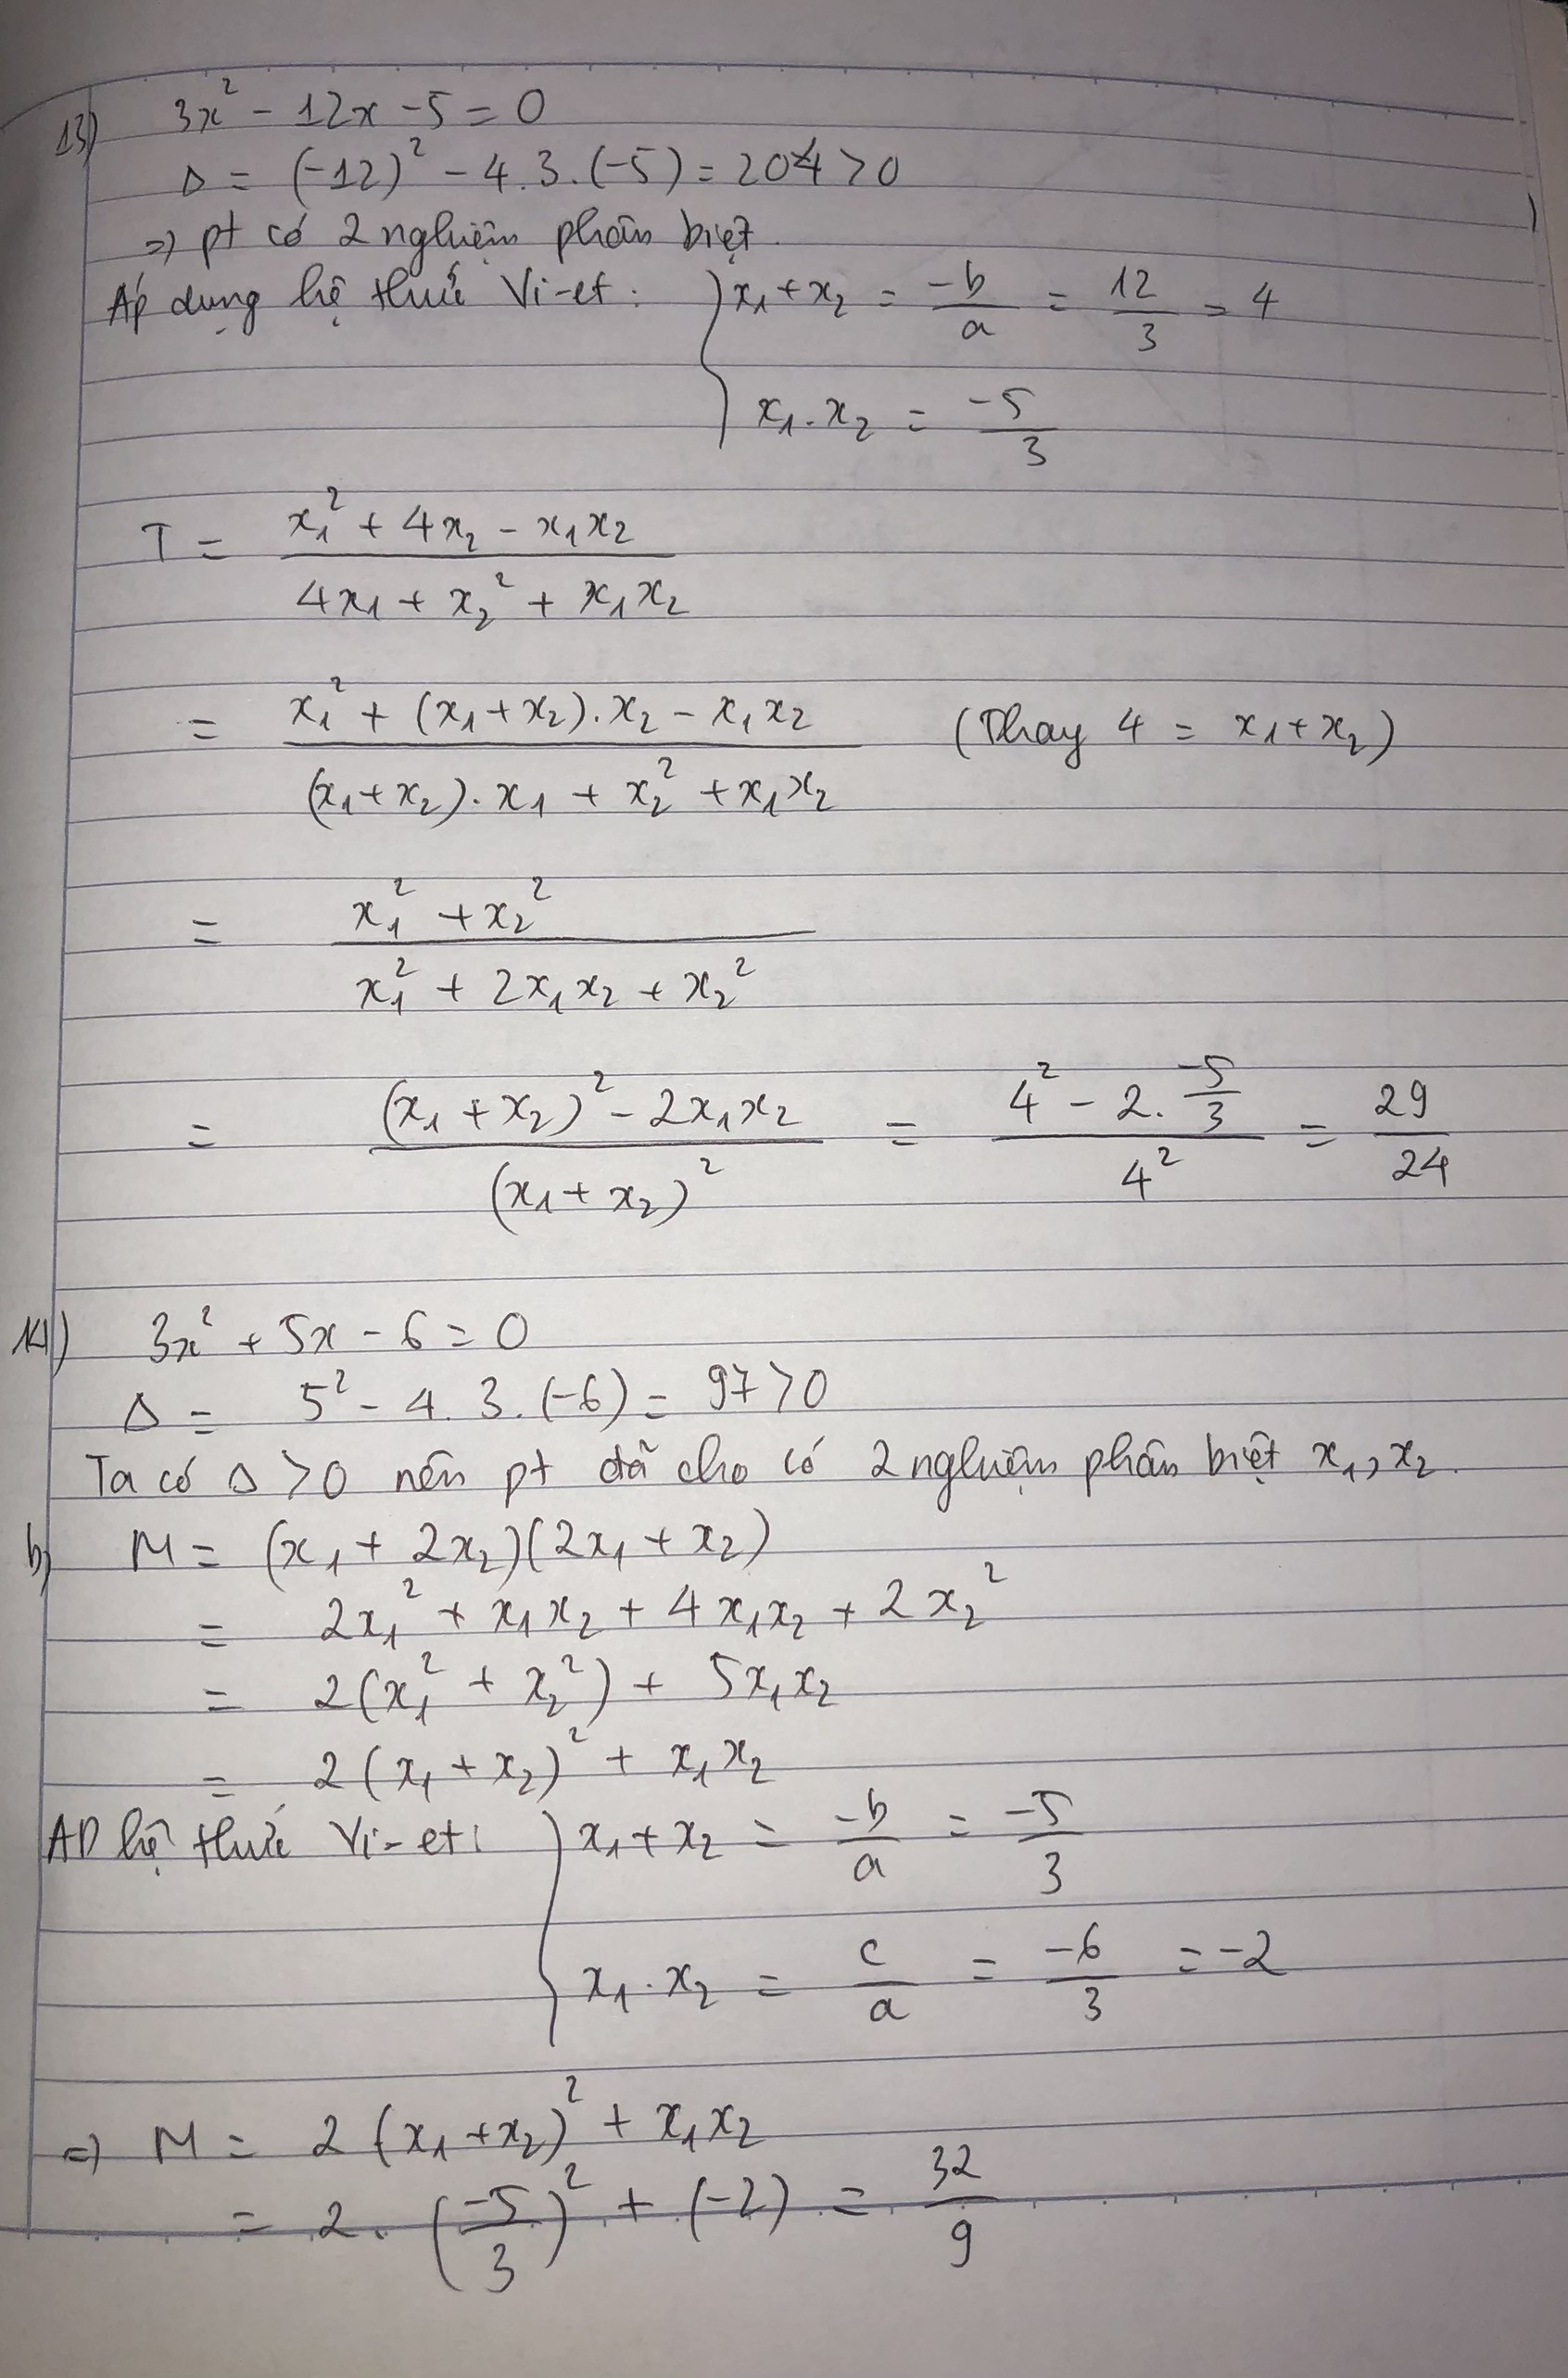 13) 3x² - 12x - 5 = 0
Δ = (-12)² - 4.3.(-5) = 204 > 0
=> pt có 2 nghiệm phân biệt.
Áp dụng hệ thức Vi-et: { x₁ + x₂ = -b/a = 12/3 = 4
x₁ . x₂ = -5/3
T = (x₁² + 4x₂ - x₁x₂) / (4x₁ + x₂² + x₁x₂)
= (x₁² + (x₁ + x₂).x₂ - x₁x₂) / ((x₁ + x₂).x₁ + x₂² + x₁x₂) (Thay 4 = x₁ + x₂)
= (x₁² + x₂²) / (x₁² + 2x₁x₂ + x₂²)
= ((x₁ + x₂)² - 2x₁x₂) / (x₁ + x₂)² = (4² - 2. -5/3) / 4² = 29/24
14) 3x² + 5x - 6 = 0
Δ = 5² - 4.3.(-6) = 97 > 0
Ta có Δ > 0 nên pt đã cho có 2 nghiệm phân biệt x₁, x₂.
b) M = (x₁ + 2x₂)(2x₁ + x₂)
= 2x₁² + x₁x₂ + 4x₁x₂ + 2x₂²
= 2(x₁² + x₂²) + 5x₁x₂
= 2(x₁ + x₂)² + x₁x₂
AD hệ thức Vi-et: { x₁ + x₂ = -b/a = -5/3
x₁ . x₂ = c/a = -6/3 = -2
=> M = 2(x₁ + x₂)² + x₁x₂
= 2. (-5/3)² + (-2) = 32/9